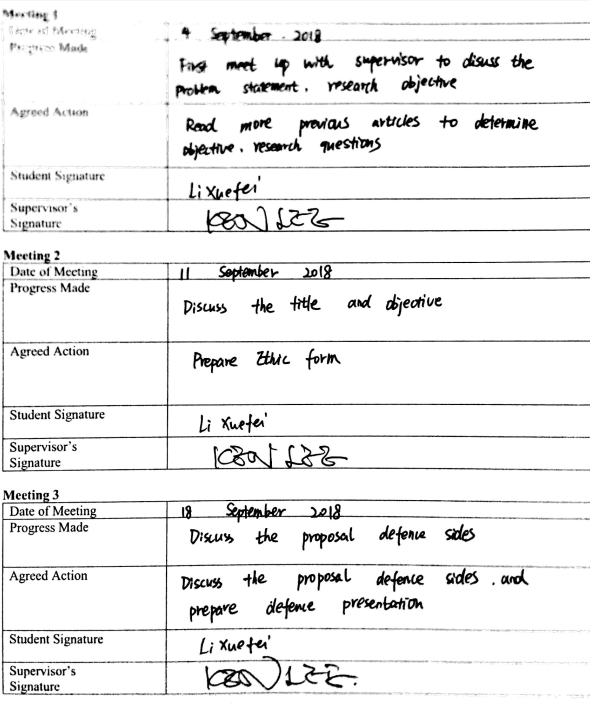 Meeting 1
Date of Meeting 4 September . 2018
Progress Made
First meet up with supervisor to disuss the
problem statement. research objective
Agreed Action
Read more previous articles to determine
objective. research questions
Student Signature
Li Xuefei
Supervisor's
Signature
Meeting 2
Date of Meeting 11 September 2018
Progress Made
Discuss the title and objective
Agreed Action
Prepare Ethic form
Student Signature
Li Xuefei
Supervisor's
Signature
Meeting 3
Date of Meeting 18 September 2018
Progress Made
Discuss the proposal defence sides
Agreed Action
Discuss the proposal defence sides . and
prepare defence presentation
Student Signature
Li Xuefei
Supervisor's
Signature